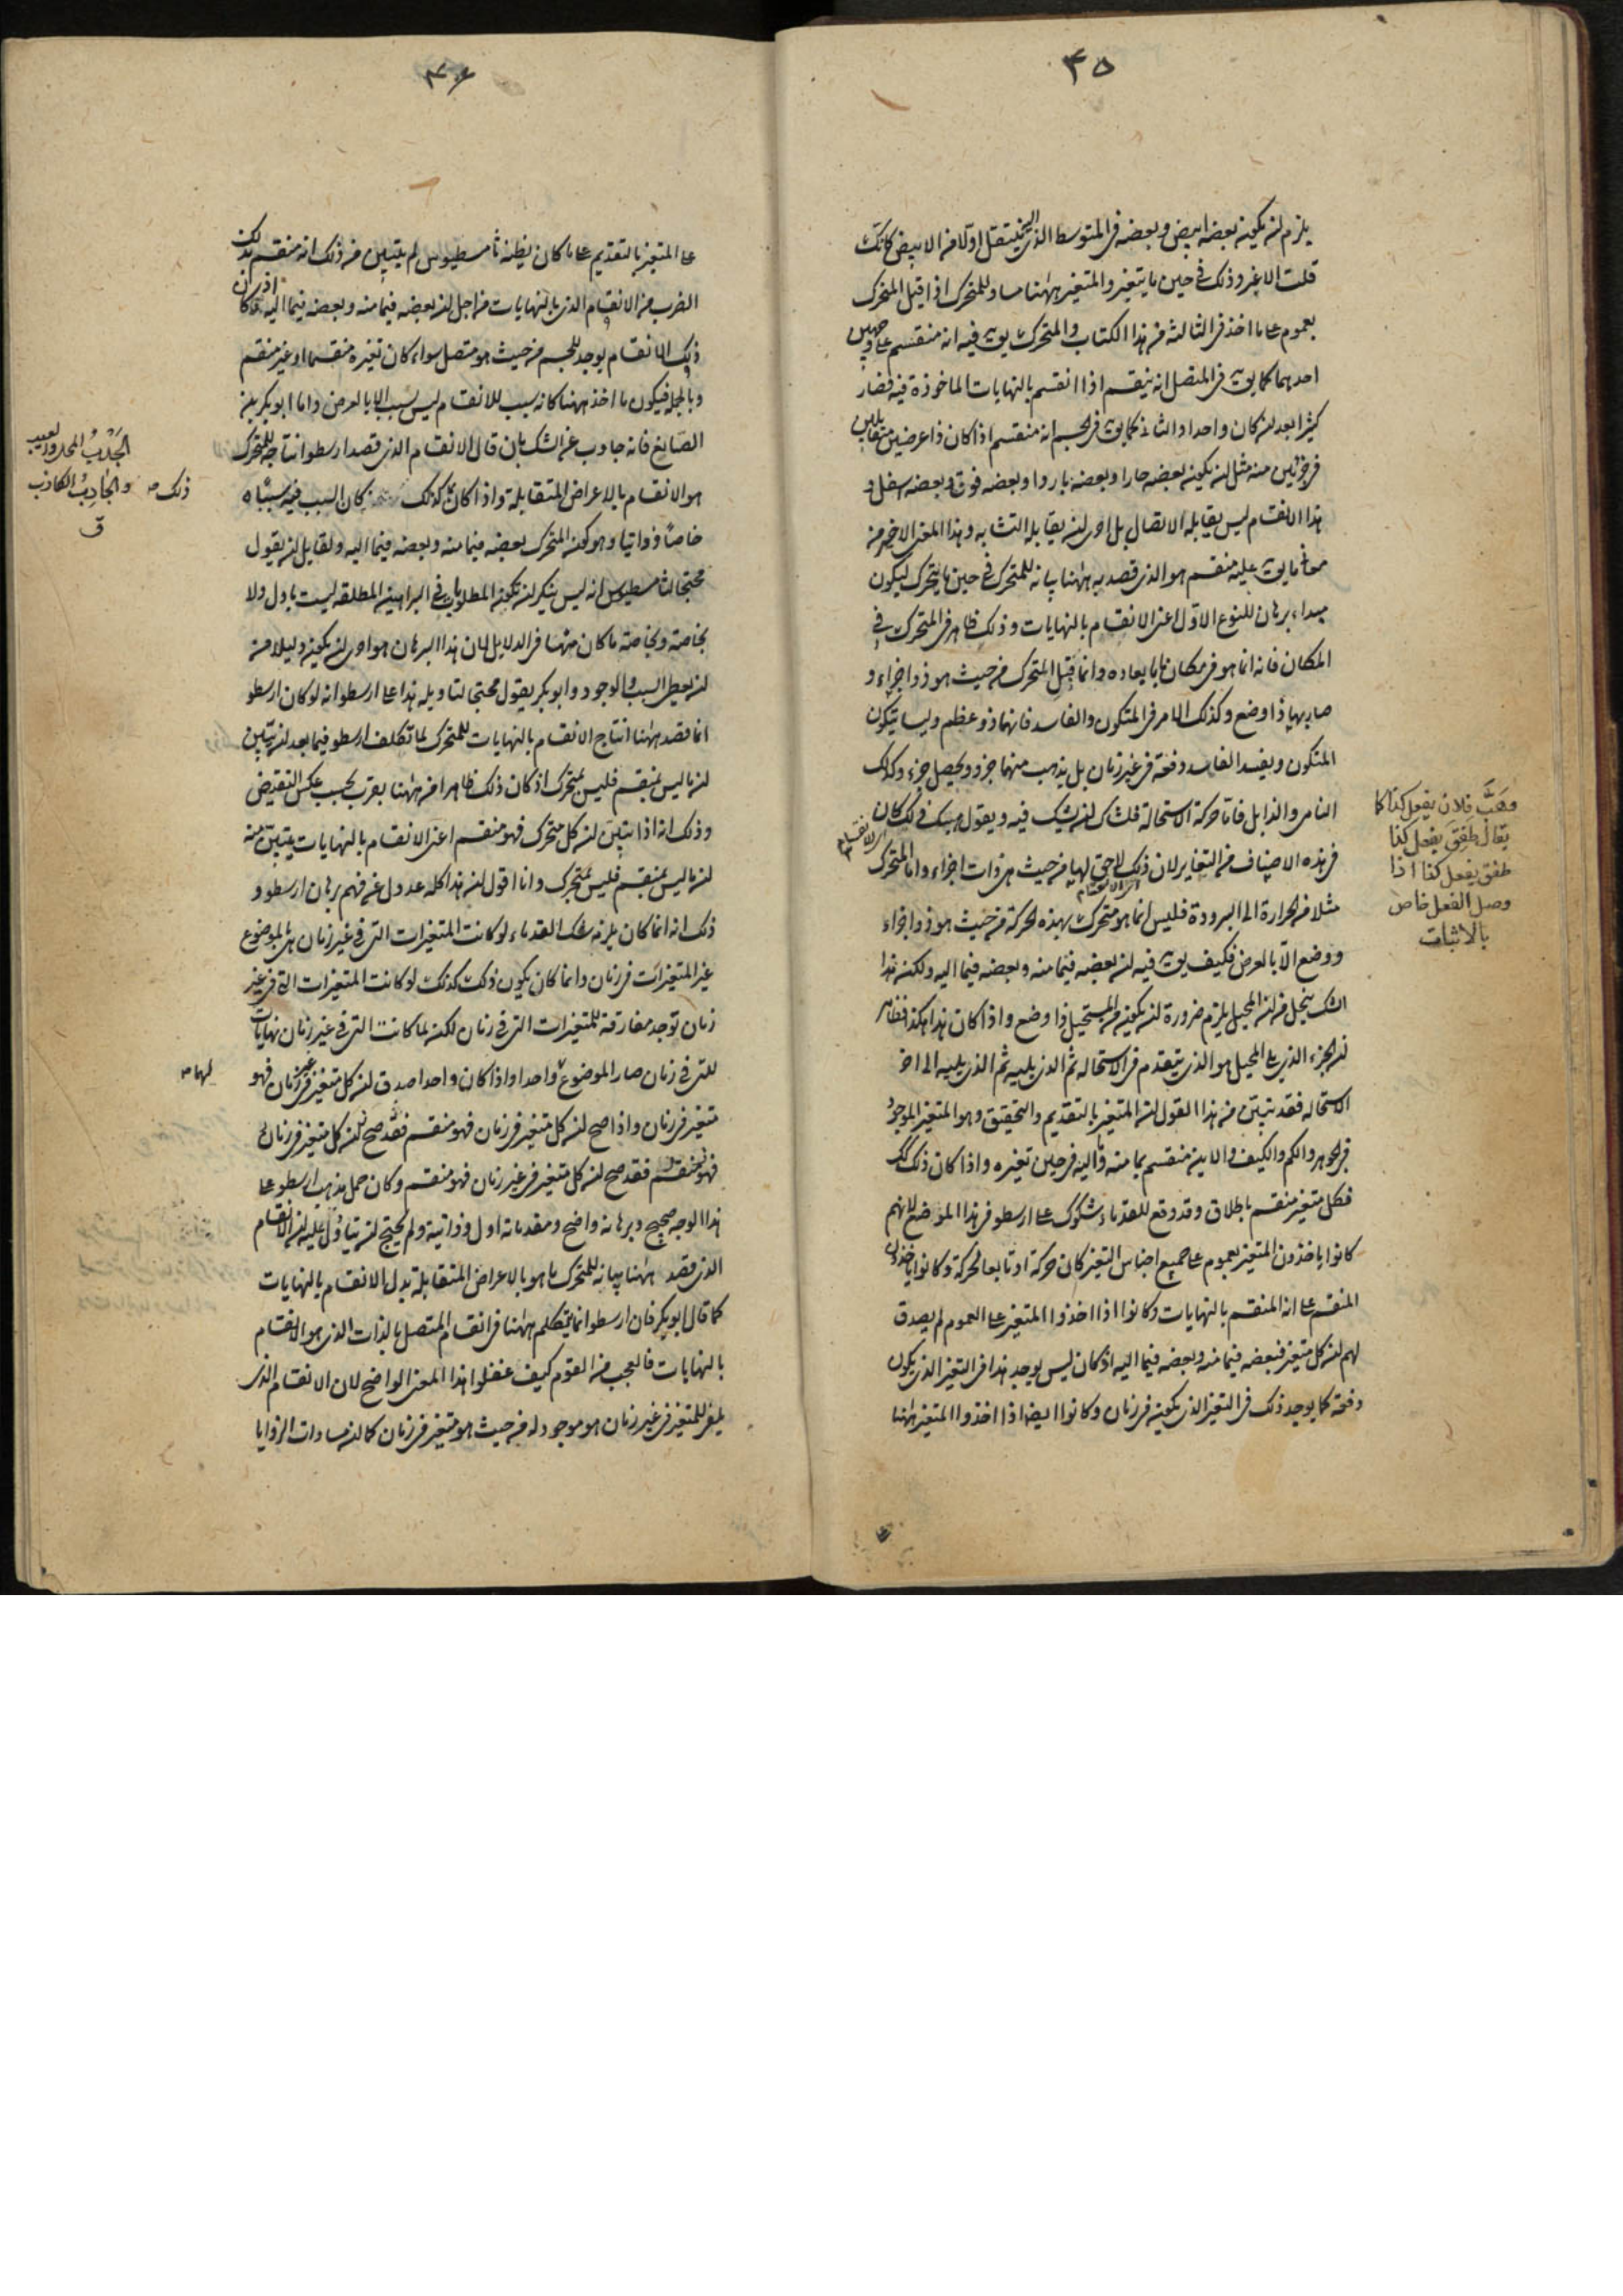 ٤٥
يلزم ان يكون بعضه ابيض وبعضه فى المتوسط الذى ينتقل اولا من الابيض كانك
قلت الاغبر وذلك فى حين ما يتغير والمتغير ههنا مساو للمتحرك اذا قيل المتحرك
بعموم على ما اخذ فى الثالثة من هذا الكتاب والمتحرك يق فيه انه منقسم على وجهين
احدهما كما يق فى المتصل انه ينقسم اذا انقسم بالنهايات الماخوذة فيه فصار
كثيرا بعد ان كان واحدا والثانى كما يق فى الجسم انه منقسم اذا كان ذا عرضين متقابلين
فى جزئين منه مثل ان يكون بعضه حارا وبعضه باردا وبعضه فوق وبعضه اسفل و
هذا الانقسام ليس يقابله الاتصال بل احرى ان يقابله التشابه وهذا المعنى الاخير من
معانى ما يق عليه منقسم هو الذى قصد به ههنا بيانه للمتحرك فى حين ما يتحرك ليكون
مبداء برهان للنوع الاول اعنى الانقسام بالنهايات وذلك ظاهر فى المتحرك فى
المكان فانه انما هو فى مكان ما بابعاده وانما قبل المتحرك من حيث هو ذو اجزاء و
صار بها ذا وضع وكذلك الامر فى المتكون والفاسد فانهما ذو عظم وليسا يتكون
المتكون ويفسد الفاسد دفعة فى غير زمان بل يذهب منهما جزء ويحصل جزء وكذلك
النامى والذابل فاما حركة الاستحالة فلشاك ان يشك فيه ويقول هبك فى ذلك كان
فى هذه الاصناف من التغاير لان ذلك لاحق لها من حيث هى ذات اجزاء واما المتحرك
مثلا من الحرارة الى البرودة فليس انما هو متحرك بهذه الحركة من حيث هو ذو اجزاء
ووضع الا بالعرض فكيف يق فيه ان بعضه فيما منه وبعضه فيما اليه ولكن هذا
الشك ينحل من ان المحيل يلزم ضرورة ان يكون من المستحيل ذا وضع واذا كان هذا هكذا فظاهر
ان الجزء الذى يلى المحيل هو الذى يتقدم فى الاستحالة ثم الذى يليه ثم الذى يليه الى اخر
الاستحالة فقد تبين من هذا القول ان المتغير بالتقديم والتحقيق وهو المتغير الموجود
فى الجوهر والكم والكيف والاين منقسم بما منه واليه فى حين تغيره واذا كان ذلك كك
فكل متغير منقسم باطلاق وقد وقع للقدماء شكوك على ارسطو فى هذا الموضع لانهم
كانوا ياخذون المتغير بعموم على جميع اجناس التغير كان حركة او تابعا لحركة وكانوا ياخذون
المنقسم على انه المنقسم بالنهايات وكانوا اذا اخذوا المتغير على العموم لم يصدق
لهم ان كل متغير فبعضه فيما منه وبعضه فيما اليه اذ كان ليس يوجد هذا فى التغير الذى يكون
دفعة كما يوجد ذلك فى التغير الذى يكون فى زمان وكانوا ايضا اذا اخذوا المتغير ههنا
وهَبَّ فلان يفعل كذا كما
يقال طفِقَ يفعل كذا
طفق يفعل كذا اذا
وصل الفعل خاص
بالاثبات
٤٦
على المتغير بالتقديم على ما كان يظنه ثامسطيوس لم يتبين من ذلك انه منقسم بذلك
الضرب من الانقسام الذى بالنهايات من اجل ان بعضه فيما منه وبعضه فيما اليه اذ كان
ذلك الانقسام يوجد للجسم من حيث هو متصل سواء كان تغيره منقسما او غير منقسم
وبالجملة فيكون ما اخذ ههنا كانه سبب للانقسام ليس بسبب الا بالعرض واما ابو بكر بن
الصايغ فانه جاوب عن الشك بان قال الانقسام الذى قصد ارسطو انتاجه للمتحرك
هو الانقسام بالاعراض المتقابلة واذا كان كذلك كان السبب فيه سببا
خاصا وذاتيا وهو كون المتحرك بعضه فيما منه وبعضه فيما اليه ولقايل ان يقول
محتجا لثامسطيوس انه ليس ينكر ان تكون المطلوبات فى البراهين المطلقة ليست باول ولا
بخاصة وبخاصة ما كان منها فى الدلايل لان هذا البرهان هو احرى ان يكون دليلا منه
ان يعطى السبب والوجود وابو بكر يقول محتجا لتاويله هذا على ارسطو انه لو كان ارسطو
انما قصد ههنا انتاج الانقسام بالنهايات للمتحرك لما تكلف ارسطو فيما بعد ان يبين
ان ما ليس بمنقسم فليس بمتحرك اذ كان ذلك ظاهرا من ههنا بقرب بحسب عكس النقيض
وذلك انه اذا تبين ان كل متحرك فهو منقسم اعنى الانقسام بالنهايات يتبين منه
ان ما ليس بمنقسم فليس بمتحرك وانا اقول ان هذا كله عدول عن فهم برهان ارسطو و
ذلك انه انما كان يلزمه شك القدماء لو كانت المتغيرات التى فى غير زمان هى بالموضوع
غير المتغيرات فى زمان وانما كان يكون ذلك كذلك لو كانت المتغيرات التى فى غير
زمان توجد مفارقة للمتغيرات التى فى زمان لكن لما كانت التى فى غير زمان نهايات
للتى فى زمان صار الموضوع واحدا واذا كان واحدا صدق ان كل متغير فى غير زمان فهو
متغير فى زمان واذا صح ان كل متغير فى زمان فهو منقسم فقد صح ان كل متغير فى زمان
فهو منقسم فقد صح ان كل متغير فى غير زمان فهو منقسم وكان حمل مذهب ارسطو على
هذا الوجه صحيح وبرهانه واضح ومقدماته اول وذاتية ولم يحتج ان يتاول عليه ان الانقسام
الذى قصد ههنا بيانه للمتحرك ما هو بالاعراض المتقابلة بدل الانقسام بالنهايات
كما قال ابو بكر فان ارسطو انما يتكلم ههنا فى انقسام المتصل بالذات الذى هو الانقسام
بالنهايات فالعجب من القوم كيف غفلوا هذا المعنى الواضح لان الانقسام الذى
للمتغير فى غير زمان هو موجود له من حيث هو متغير فى زمان كما ان مساوات الزوايا
ذلك
والجادِبُ الكاذب
ق
لهما